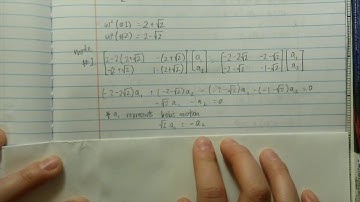 ω²(#1) = 2+√2
ω²(#2) = 2-√2
mode
#1) [2-2(2+√2) -(2+√2) -(2+√2) 1-(2+√2)] [a₁ a₂] = [-2-2√2 -2-√2 -2-√2 -1-√2] [a₁ a₂]
(-2-2√2)a₁ + (-2-√2)a₂ - (-2-√2)a₁ - (-1-√2)a₂ = 0
-√2 a₁ - a₂ = 0
a₁ represents motion
√2 a₁ = -a₂